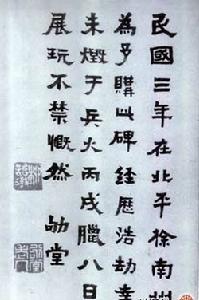 民國三年在北平徐南州
為予購此碑經歷浩劫幸
未燬于兵火丙戌臘八日
展玩不禁慨然 勛堂